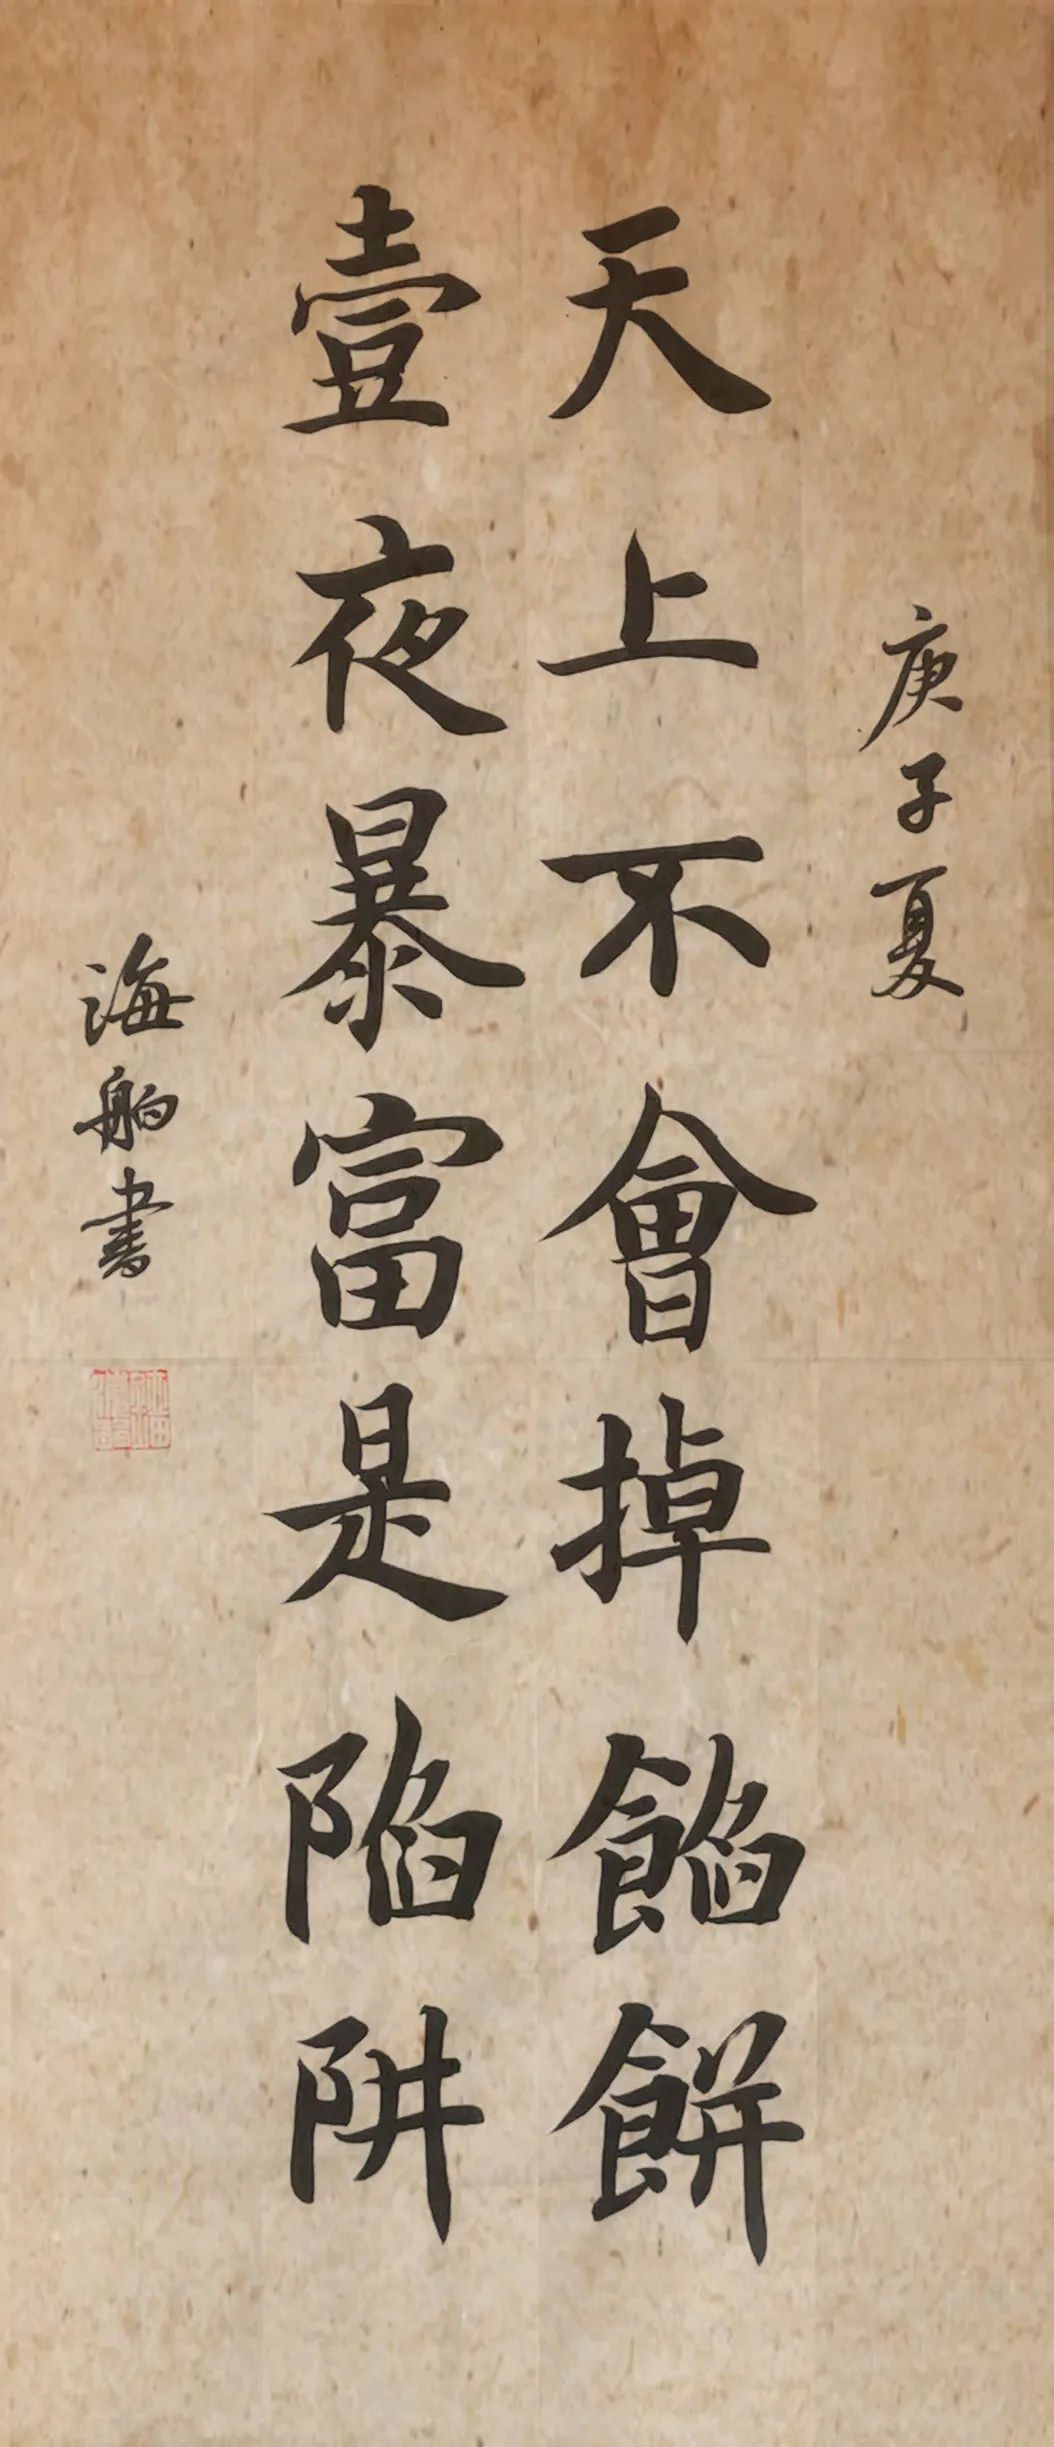 庚子夏
天上不會掉餡餅
壹夜暴富是陷阱
海舶書